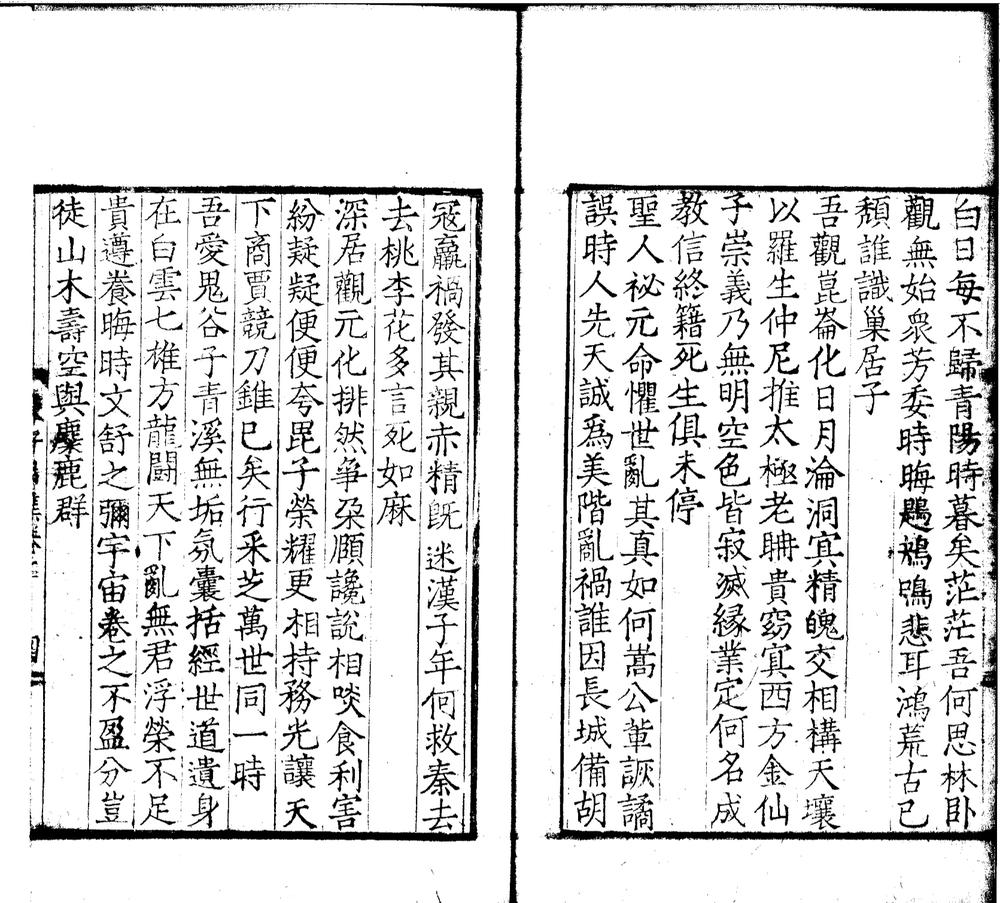 白日每不歸青陽時暮矣茫茫吾何思林卧
觀無始衆芳委時晦鶗鴂鳴悲耳鴻荒古已
頽誰識巢居子
吾觀崑崙化日月淪洞冥精魄交相構天壤
以羅生仲尼推太極老聃貴窈冥西方金仙
子崇義乃無明空色皆寂滅緣業定何名成
教信終籍死生俱未停
聖人祕元命懼世亂其真如何嵩公軰詼譎
誤時人先天誠爲美階亂禍誰因長城備胡
寇嬴禍發其親赤精既迷漢子年何救秦去
去桃李花多言死如麻
深居觀元化排然争朶頤讒說相啖食利害
紛疑疑便便夸毘子榮耀更相持務光讓天
下商賈競刀錐已矣行釆芝萬世同一時
吾愛鬼谷子青溪無垢氛囊括經世道遺身
在白雲七雄方龍闘天下亂無君浮榮不足
貴遵養晦時文舒之彌宇宙卷之不盈分豈
徒山木壽空與麋鹿群
四